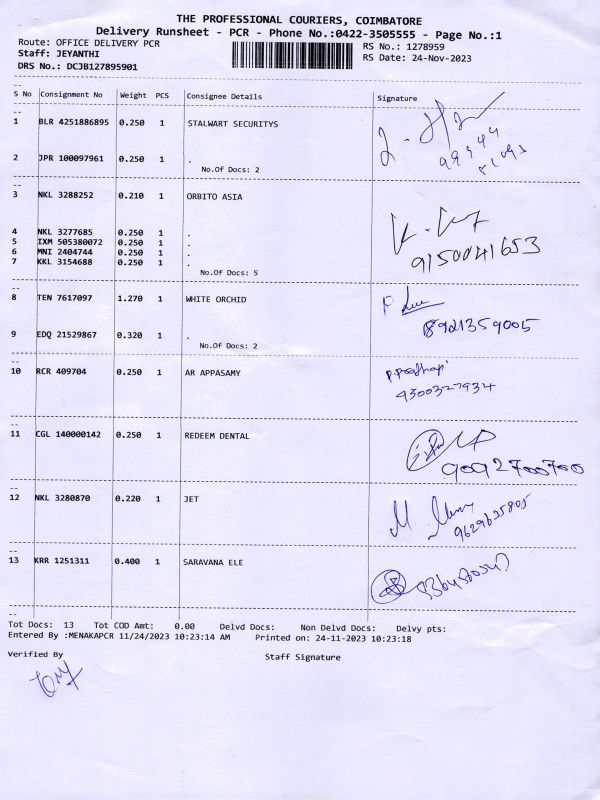 THE PROFESSIONAL COURIERS, COIMBATORE
Delivery Runsheet - PCR - Phone No.:0422-3505555 - Page No.:1
Route: OFFICE DELIVERY PCR
RS No.: 1278959
Staff: JEYANTHI
RS Date: 24-Nov-2023
DRS No.: DCJB127895901
S No Consignment No Weight PCS Consignee Details Signature
1 BLR 4251886895 0.250 1 STALWART SECURITYS
2 JPR 100097961 0.250 1 .
No.Of Docs: 2
3 NKL 3288252 0.210 1 ORBITO ASIA
4 NKL 3277685 0.250 1 .
5 IXM 505380072 0.250 1 .
6 MNI 2404744 0.250 1 .
7 KKL 3154688 0.250 1 .
9150041653
No.Of Docs: 5
8 TEN 7617097 1.270 1 WHITE ORCHID
8921359005
9 EDQ 21529867 0.320 1 .
No.Of Docs: 2
10 RCR 409704 0.250 1 AR APPASAMY
9300327934
11 CGL 140000142 0.250 1 REDEEM DENTAL
9092700700
12 NKL 3280870 0.220 1 JET
9629635805
13 KRR 1251311 0.400 1 SARAVANA ELE
Tot Docs: 13 Tot COD Amt: 0.00 Delvd Docs: Non Delvd Docs: Delvy pts:
Entered By :MENAKAPCR 11/24/2023 10:23:14 AM Printed on: 24-11-2023 10:23:18
Verified By Staff Signature